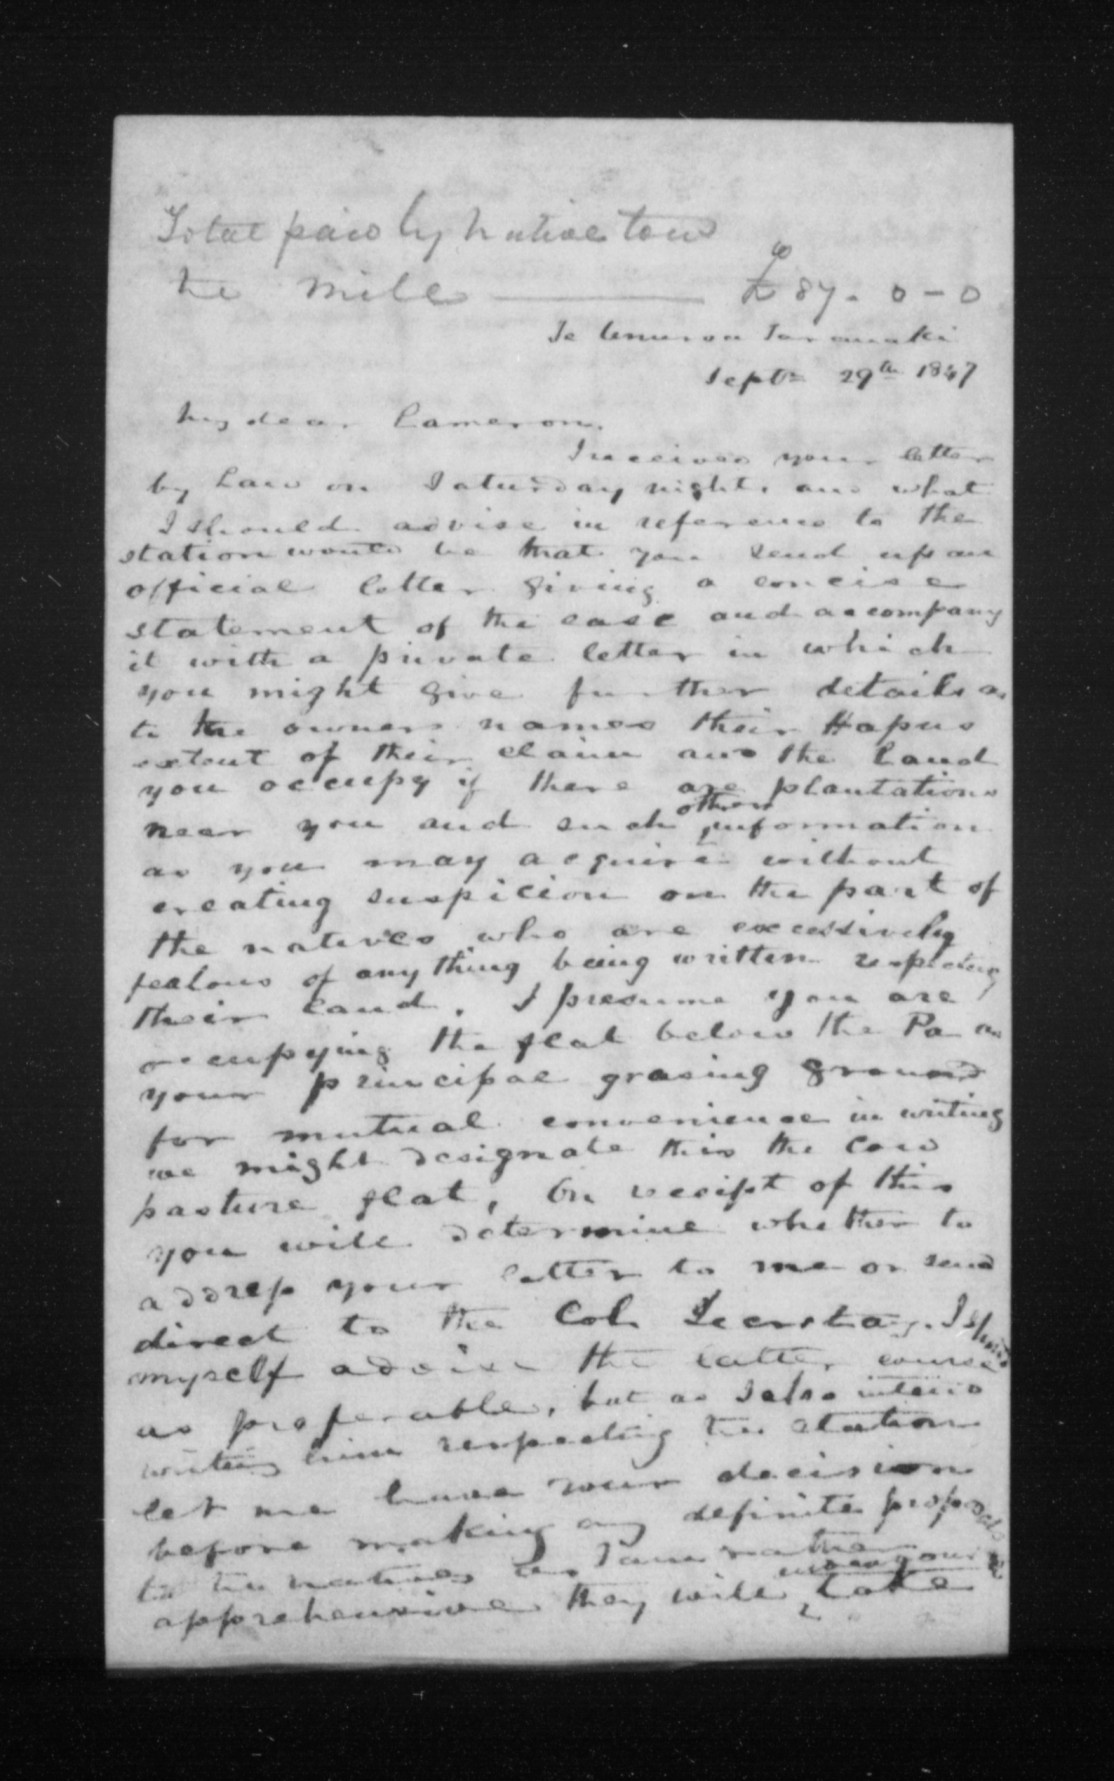 Total paid by Natives tow
the Mill ——— £87. 0 - 0
Te Umuroa Taranaki
Septr 29th 1847
My dear Cameron,
I received your letter
by Law on Saturday night, and what
I should advise in reference to the
station would be that you send up an
official letter giving a concise
statement of the case and accompany
it with a private letter in which
you might give further details as
to the owners names their Hapus
extent of their claim and the land
you occupy if there are plantations
near you and such other information
as you may acquire without
creating suspicion on the part of
the natives who are excessively
jealous of anything being written respecting
their land. I presume you are
occupying the flat below the Pa as
your principal grasing ground
for mutual convenience in writing
we might designate this the Cow
pasture flat, On receipt of this
you will determine whether to
address your letter to me or send
direct to the Col. Secretary. I should
myself advise the latter course
as preferable, but as I also intend
writing him respecting the station
let me have your decision
before making any definite proposals
to the natives as I am rather
apprehensive they will take